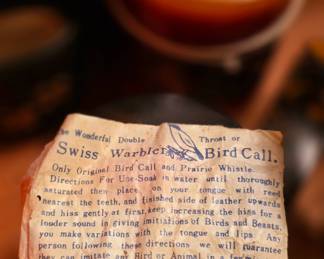 The Wonderful Double Throat or
Swiss Warbler Bird Call.
Only Original Bird Call and Prairie Whistle.
Directions For Use-Soak in water until thoroughly
saturated then place on your tongue with reed
nearest the teeth, and finished side of leather upwards
and hiss gently at first, keep increasing the hiss for a
louder sound in giving imitations of Birds and Beasts,
you make variations with the tongue and lips Any
person following these directions we will guarantee
they can imitate any Bird or Animal in a